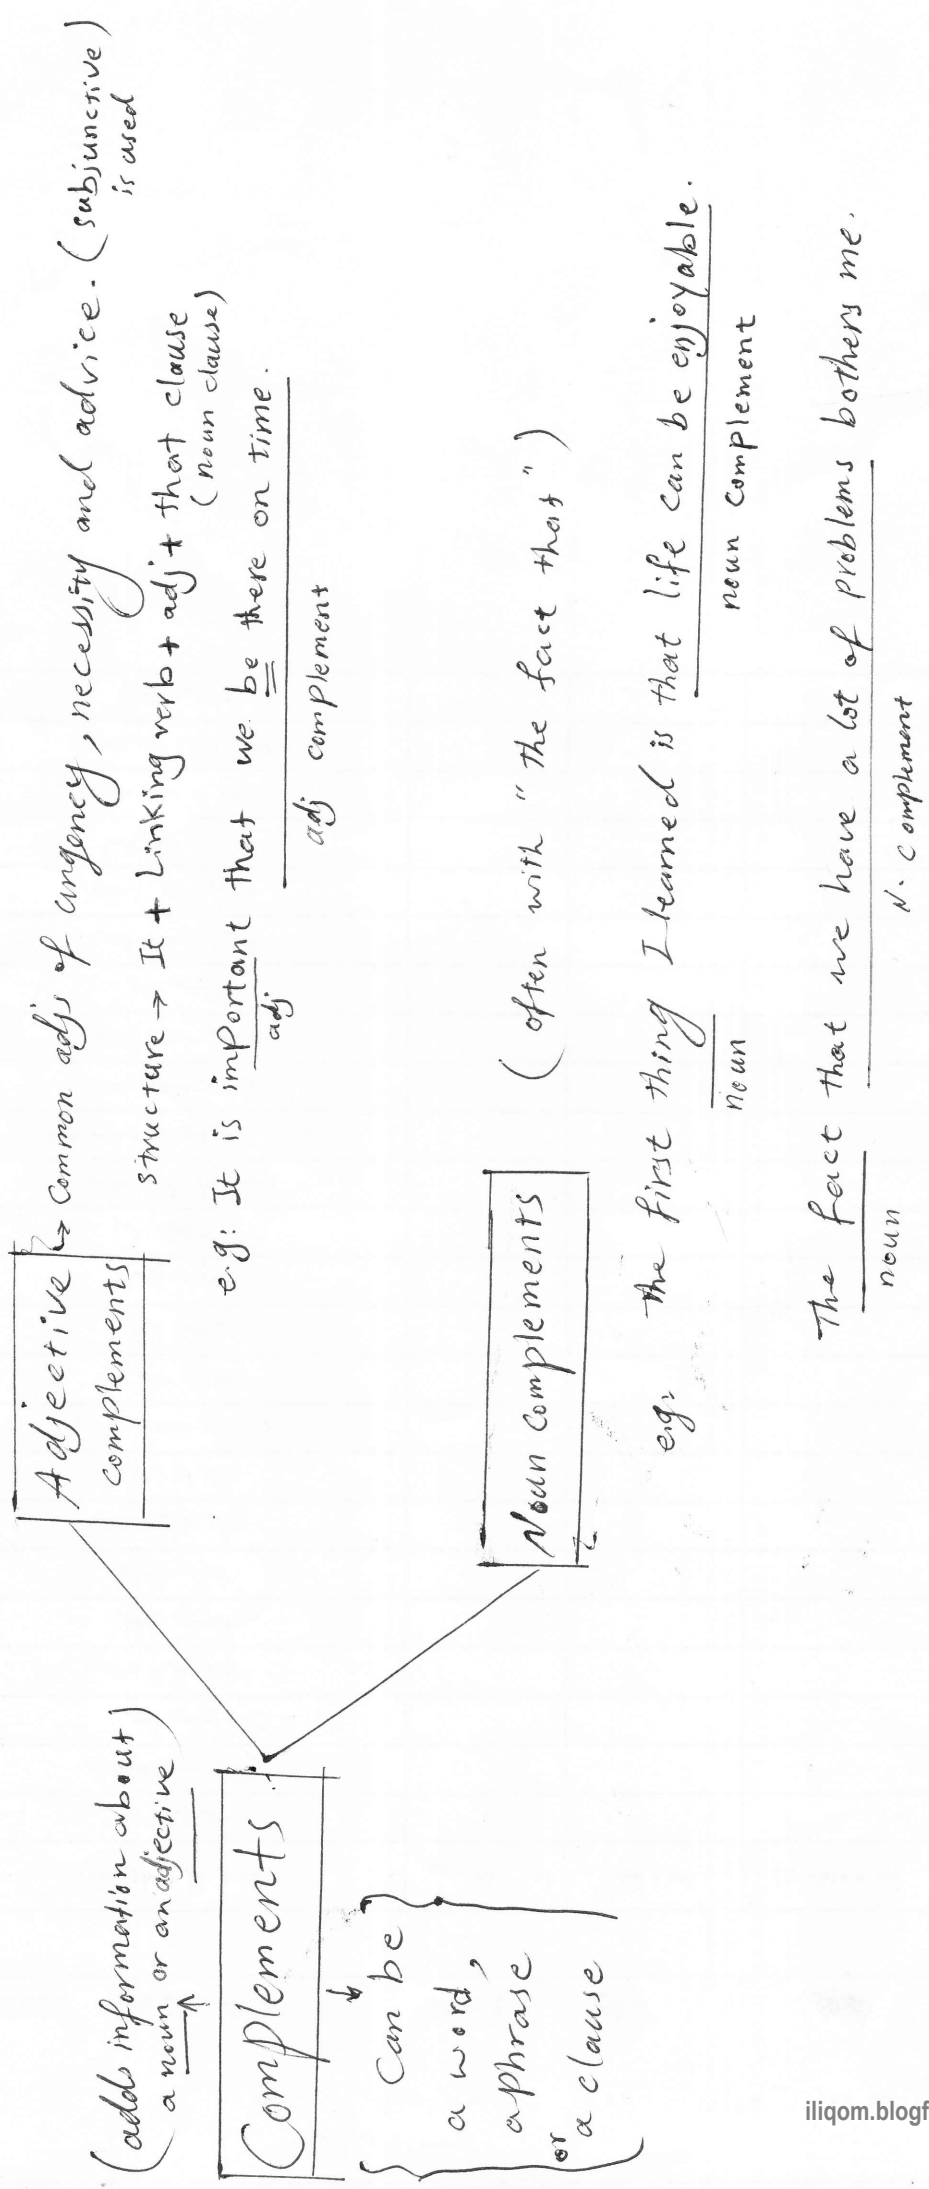 (adds information about
a noun or an adjective)
Complements
can be
a word,
a phrase
or
a clause
Adjective
complements
Common adjs of urgency, necessity and advice. (subjunctive
is used)
structure → It + Linking verb + adj + that clause
(noun clause)
e.g: It is important that we be there on time.
adj
adj complement
Noun complements
(often with "the fact that")
e.g: The first thing I learned is that life can be enjoyable.
noun
noun complement
The fact that we have a lot of problems bothers me.
noun
N. complement
iliqom.blogf